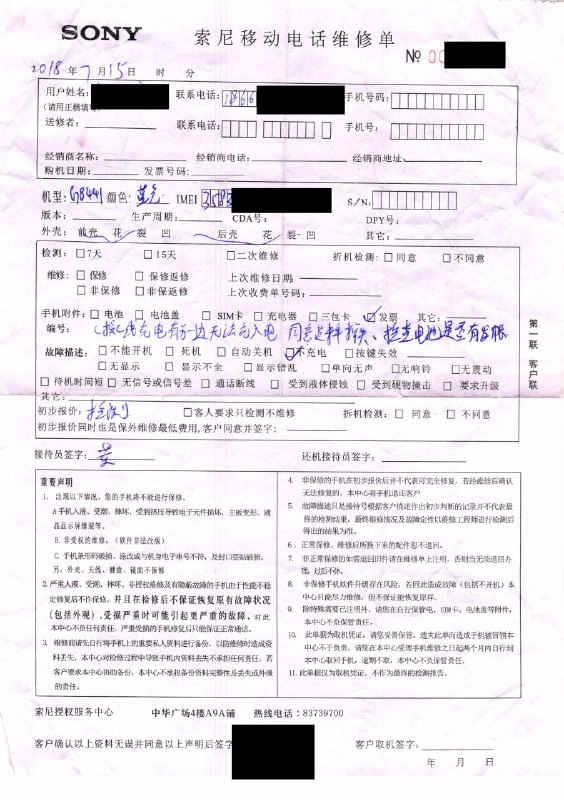 SONY 索尼移动电话维修单
№ 00
2018 年 7 月 15 日 时 分
用户姓名: 联系电话: 1866 手机号码:
(请用正楷填写)
送修者: 联系电话: 手机号:
经销商名称: 经销商电话: 经销商地址:
购机日期: 发票号码:
机型: G8441 颜色: IMEI 3585 S/N:
版本: 生产周期: CDA号: DPY号:
外壳: 前壳 花 裂 凹 后壳 花 裂 凹 其它:
检测: □ 7天 □ 15天 □ 二次维修 折机检测: □ 同意 □ 不同意
维修: □ 保修 □ 保修返修 上次维修日期:
□ 非保修 □ 非保返修 上次收费单号码:
手机附件: □ 电池 □ 电池盖 □ SIM卡 □ 充电器 □ 三包卡 ☑ 发票 其它:
编号: 充电有一边无法充入电 检查电池是否有
故障描述: □ 不能开机 □ 死机 □ 自动关机 ☑ 不充电 □ 按键失效
□ 无显示 □ 显示不全 □ 显示错乱 □ 单向无声 □ 无响铃 □ 无震动
□ 待机时间短 □ 无信号或信号差 □ 通话断线 □ 受到液体侵蚀 □ 受到硬物撞击 □ 要求升级
其它:
初步报价: □ 客人要求只检测不维修 拆机检测: □ 同意 □ 不同意
初步报价同时也是保外维修最低费用,客户同意并签字:
第一联 客户联
接待员签字: 还机接待员签字:
重要声明
1. 出现以下情况, 您的手机将不能进行保修。
A 手机入液、受潮、摔坏、受到挤压导致电子元件损坏、主板变形、液
晶显示屏爆裂等。
B. 非受权的维修。(软件非法改版)
C. 手机条形码破损、涂改或与机身电子串号不符, 及封口票贴破损。
另: 外壳、天线、键盘、镜面不保修
2. 严重入液、受潮、摔坏、非授权维修及有隐蔽故障的手机由于性能不稳
定修复后不作保修, 并且在检修后不保证恢复原有故障状况
(包括外观), 受损严重时可能引起更严重的故障, 对此
本中心不负任何责任。严重受损的手机修复后只能保证正常通话。
3. 维修前请先自行将手机上的重要私人资料进行备份, 以防维修时造成资
料丢失, 本中心对检修过程中导致手机内资料丢失不承担任何责任。若
客户要求本中心协助备份, 本中心不承担备份资料完整性及丢失或外泄
的责任。
4. 非保修的手机在初步报价后并不代表可完全修复, 若经维修后确认
无法修复的, 本中心将手机退还客户
5. 故障描述只是接待号根据客户描述作出初步判断的记录并不代表最
终的检测结果, 最终维修情况及故障定性以维修工程师进行检测后
得出的结果为准。
6. 正常保修、维修后所换下来的配件恕不退回。
7. 非正常保修的如需退回凸件请在维修单上注明, 否则当无须退回办
理, 过后不休。
8. 非保修手机软件升级存在风险, 若因此造成故障 (包括不开机) 本中
心只能尽力维修, 但不保证能恢复原样。
9. 除特殊需要已注明外, 请您在自行保管电、SIM卡、电池皮等附件,
本中心不负保管责任。
10. 此单据为取机凭证, 请您妥善保管, 遗失此单而造成手机被冒领本
中心不于负责, 请您在本中心受理手机维修之日起两个月内自行到
本中心取回手机, 逾期不取, 本中心不负保管责任。
11. 此单据仅为取机凭证, 不作为最终的检测报告。
索尼授权服务中心 中华广场4楼A9A铺 热线电话: 83739700
客户确认以上资料无误并同意以上声明后签字 客户取机签字:
年 月 日